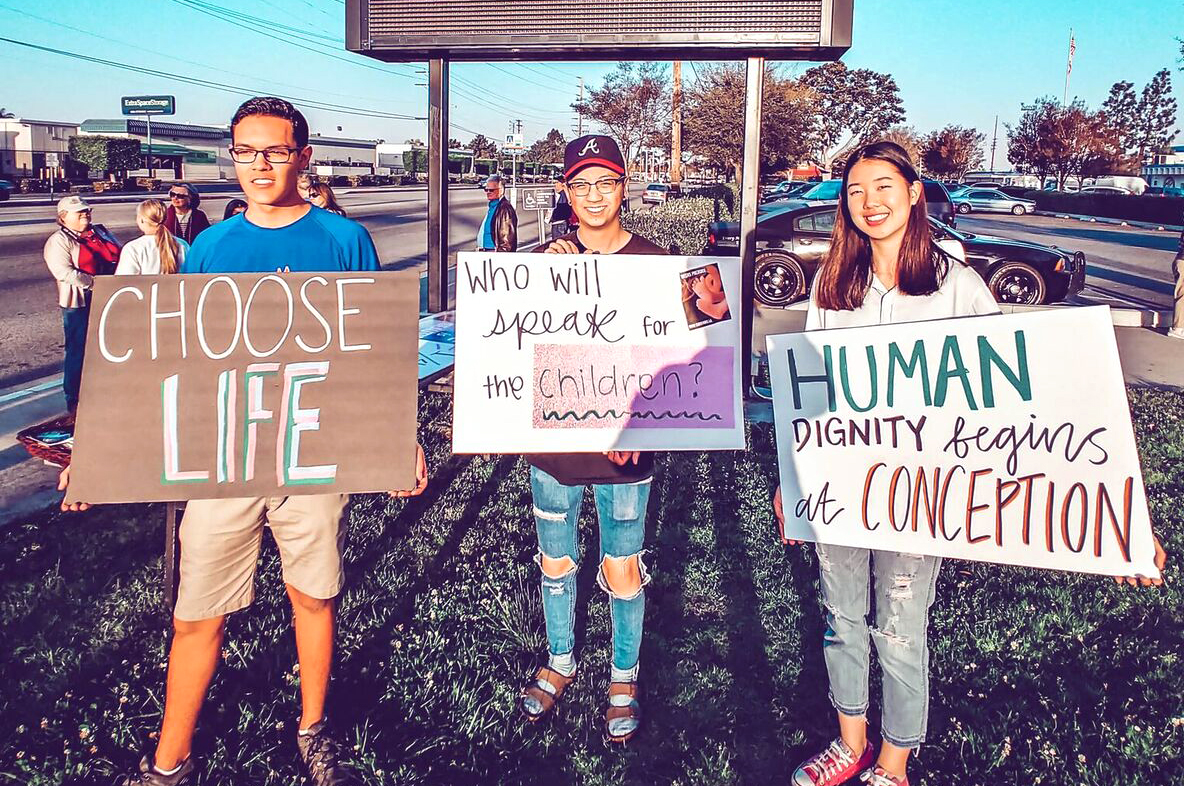 ExtraSpaceStorage
A
CHOOSE
LIFE
WHO WILL
speak for
the children?
HUMAN
DIGNITY begins
at CONCEPTION